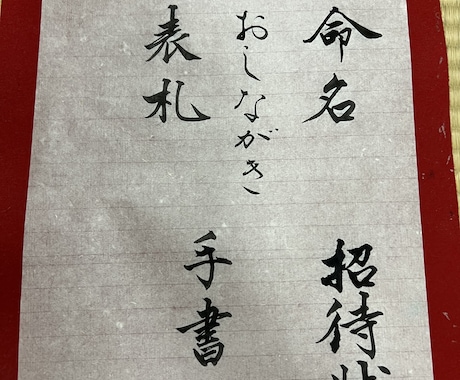 命名
招待状
おしながき
表札
手書